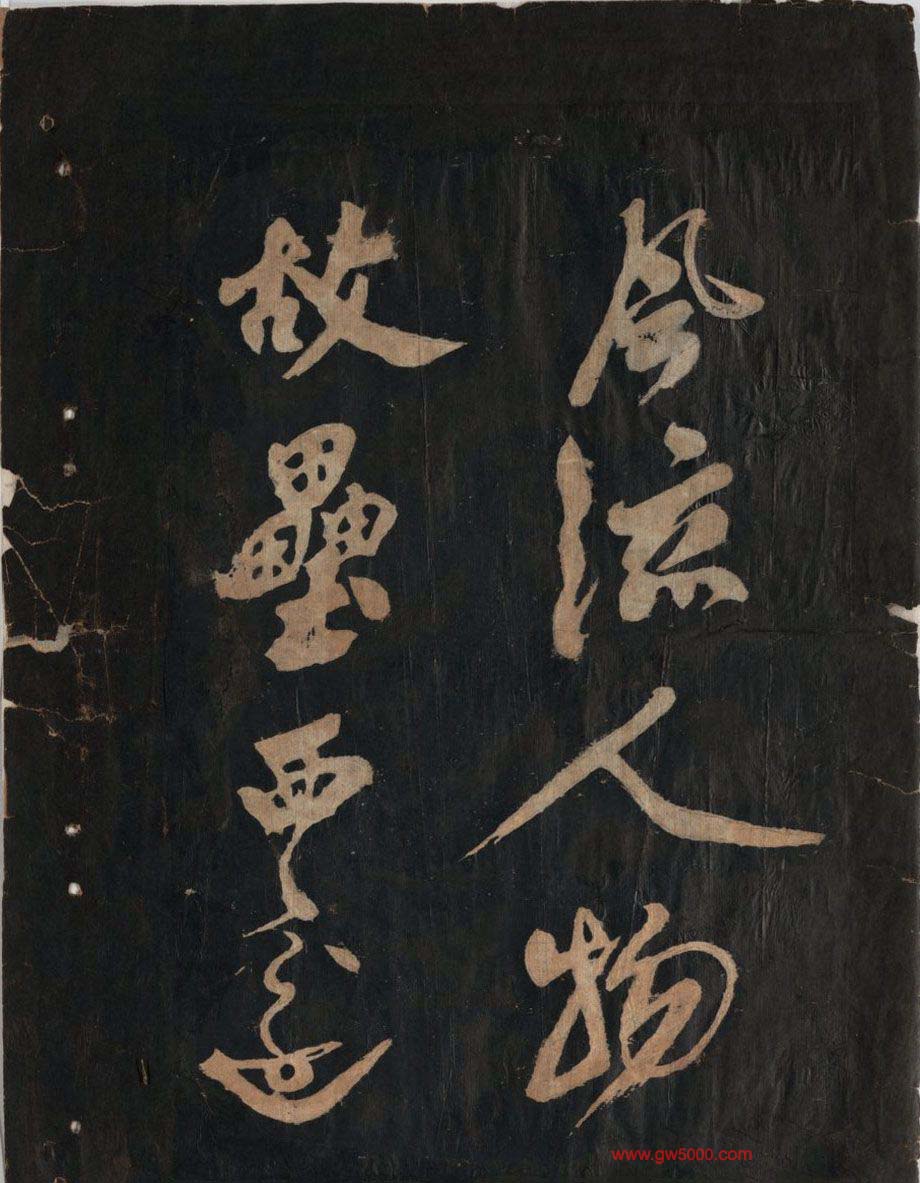 風流人物
故壘西邊
www.gw5000.com